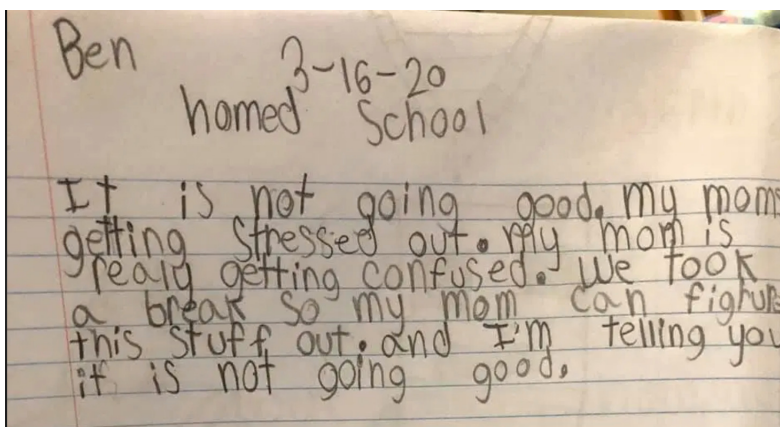 Ben
3-16-20
homed School
It is not going good. my moms
getting stressed out. My mom is
realy getting confused. We took
a break so my mom can figiur
this stuff out. and I'm telling you
it is not going good.